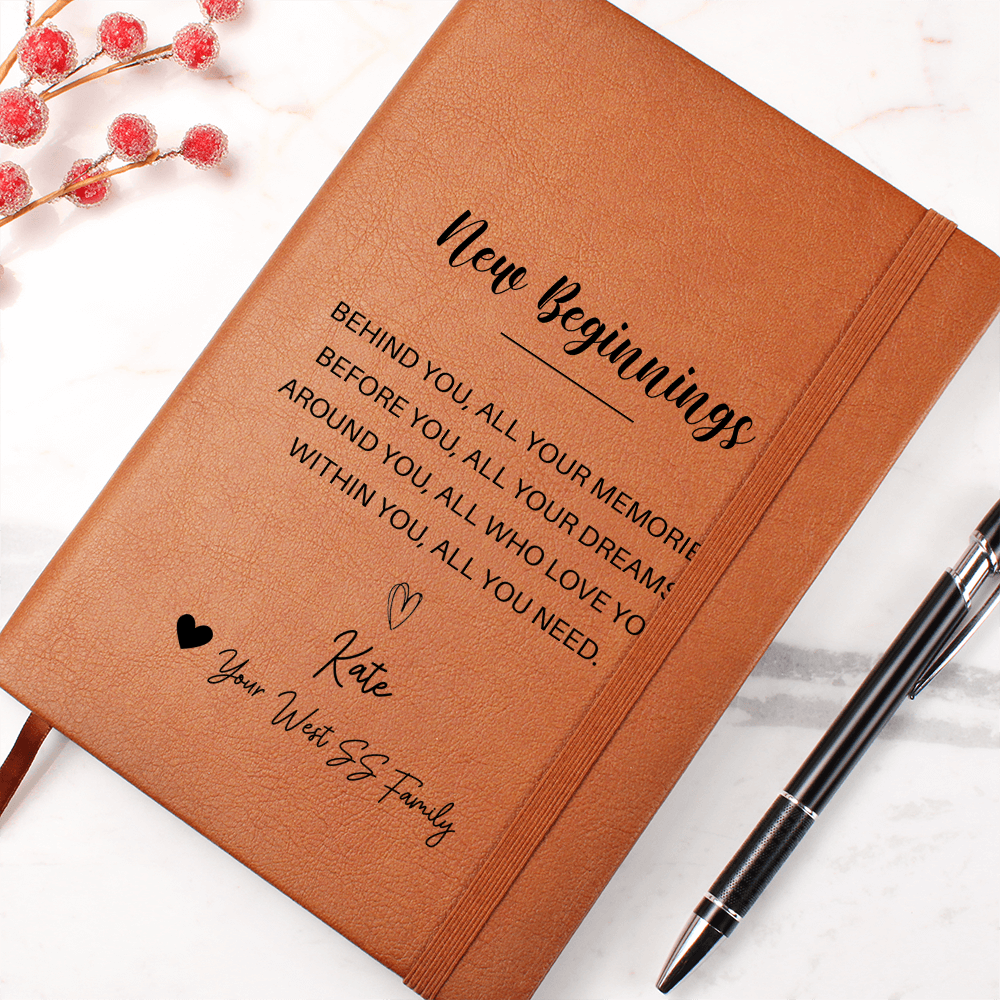 New Beginnings
BEHIND YOU, ALL YOUR MEMORIE
BEFORE YOU, ALL YOUR DREAMS
AROUND YOU, ALL WHO LOVE YO
WITHIN YOU, ALL YOU NEED.
Kate
Your West SS Family